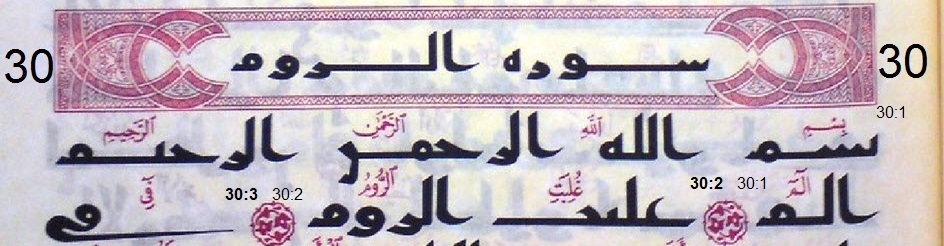 30 سوره الروم 30
30:1
بِسْمِ اللَّهِ الرَّحْمَٰنِ الرَّحِيمِ
بسم الله الرحمن الرحيم
الٓمٓ 30:1 30:2 غُلِبَتِ الرُّومُ 30:2 30:3 فِي
الم غلبت الروم في